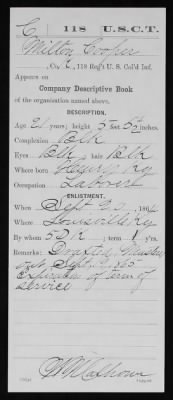 C 118 U.S.C.T.
Milton Cooper
Co. C, 118 Reg't U. S. Col'd Inf.
Appears on
Company Descriptive Book
of the organization named above.
DESCRIPTION.
Age 21 years; height 5 feet 5½ inches.
Complexion Blk
Eyes Blk, hair Blk
Where born Ky
Occupation Laborer
ENLISTMENT.
When Sept 20, 1864
Where Louisville Ky
By whom ; term 1 y'rs.
Remarks: Drafted, Muster
out Sept. 65
Expiration of term of
service